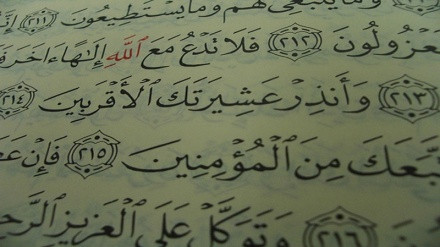 وَمَا يَنۢبَغِى لَهُمْ وَمَا يَسْتَطِيعُونَ ﴿٢١١﴾
لَمَعْزُولُونَ ﴿٢١٢﴾ فَلَا تَدْعُ مَعَ ٱللَّهِ إِلَٰهًا ءَاخَرَ
﴿٢١٣﴾ وَأَنذِرْ عَشِيرَتَكَ ٱلْأَقْرَبِينَ ﴿٢١٤﴾
ٱتَّبَعَكَ مِنَ ٱلْمُؤْمِنِينَ ﴿٢١٥﴾ فَإِنْ
﴿٢١٦﴾ وَتَوَكَّلْ عَلَى ٱلْعَزِيزِ ٱلرَّحِيمِ